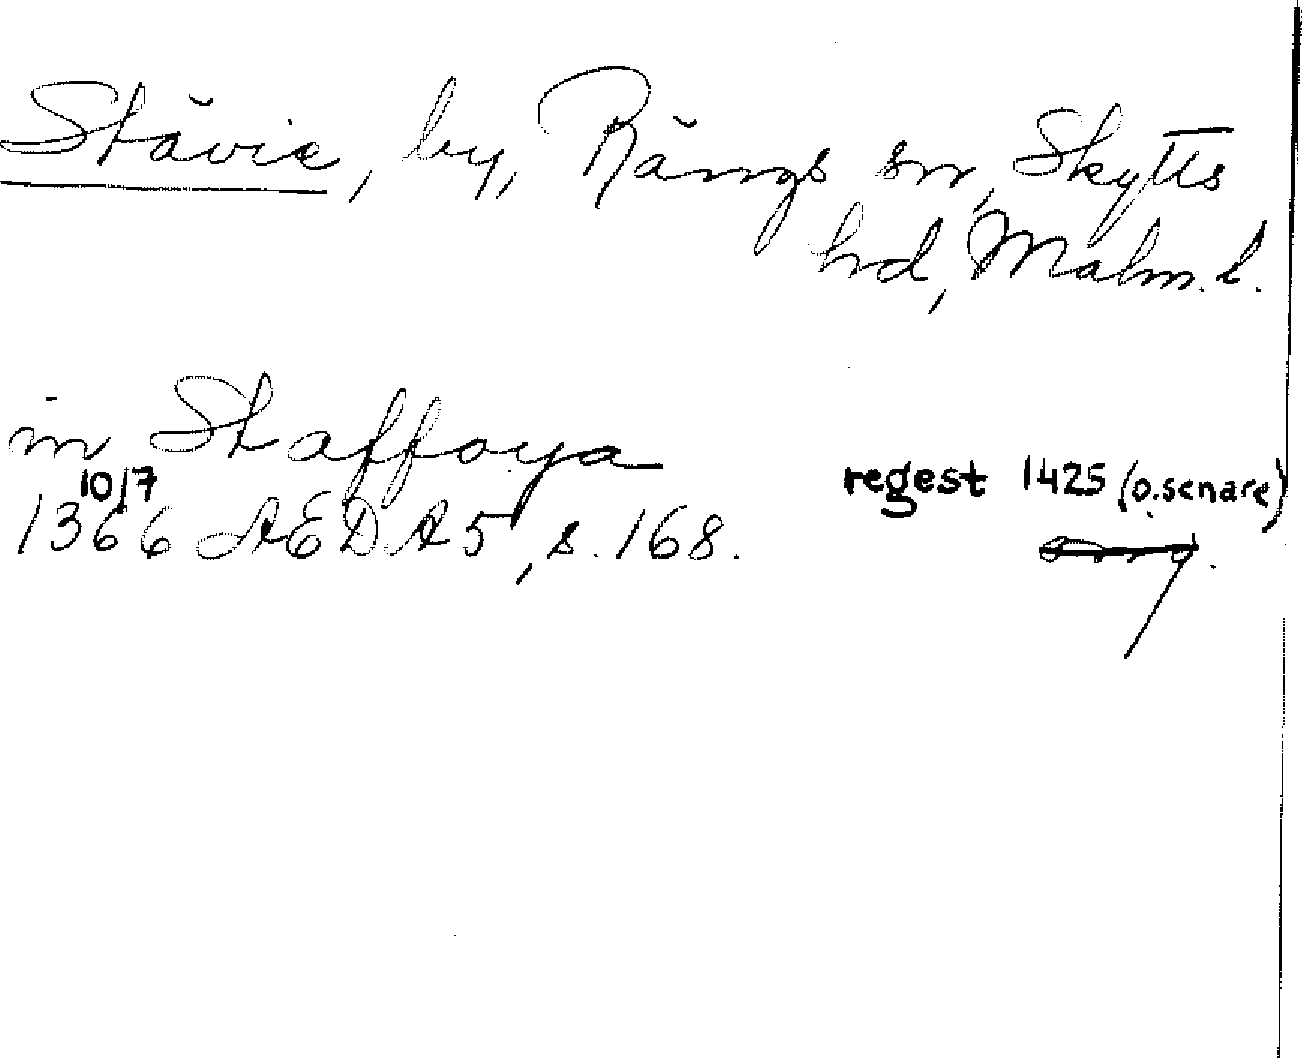 Stävie, by, Rängs sn, Skytts
hd, Malm. l.
in Staffoya
10/7
1366 AEDA 5, s. 168.
regest 1425 (o. senare)